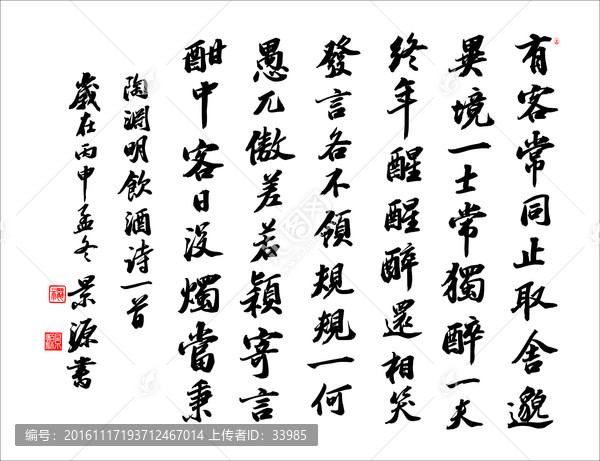 有客常同止取舍邈
異境一士常獨醉一夫
終年醒醒醉還相笑
發言各不領規規一何
愚兀傲差若穎寄言
酣中客日没燭當秉
陶淵明飲酒诗一首
歲在丙申孟冬景源書
编号：20161117193712467014 上传者ID：33985